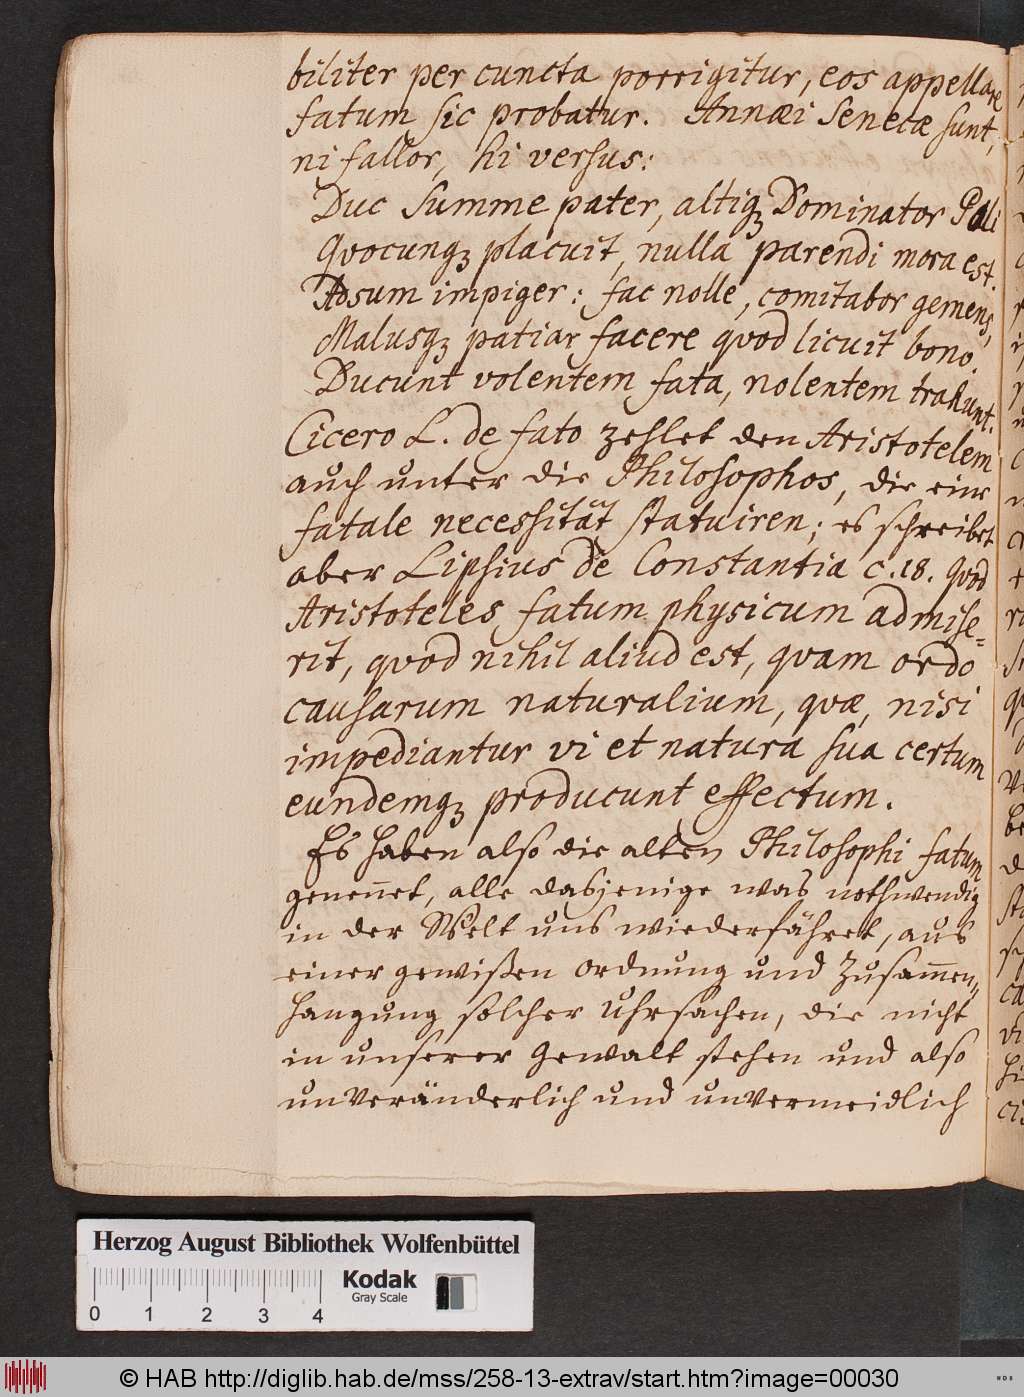 biliter per cuncta porrigitur, eos appellare
fatum sic probatur. Annæi Senecæ sunt,
ni fallor, hi versus:
Duc Summe pater, altiqꝫ Dominator Poli
Qvocunqꝫ placuit, nulla parendi mora est.
Adsum impiger: fac nolle, comitabor gemens,
Malusqꝫ patiar facere qvod licuit bono.
Ducunt volentem fata, nolentem trahunt.
Cicero L. de fato zehlet den Aristotelem
auch unter die Philosophos, die eine
fatale necessität statuiren; es schreibet
aber Lipsius de Constantia c. 18. qvod
Aristoteles fatum physicum admise=
rit, qvod nihil aliud est, qvam ordo
causarum naturalium, qvæ, nisi
impediantur vi et natura sua certum
eundemqꝫ producunt effectum.
Es haben also die alten Philosophi fatum
geneñet, alle dasjenige was nothwendig
in der Welt uns wiederfähret, aus
einer gewißen ordnung und Zusam̃en=
hangung solcher Uhrsachen, die nicht
in unserer Gewalt stehen und also
unveränderlich und unvermeidlich
Herzog August Bibliothek Wolfenbüttel
0 1 2 3 4
Kodak
Gray Scale
© HAB http://diglib.hab.de/mss/258-13-extrav/start.htm?image=00030